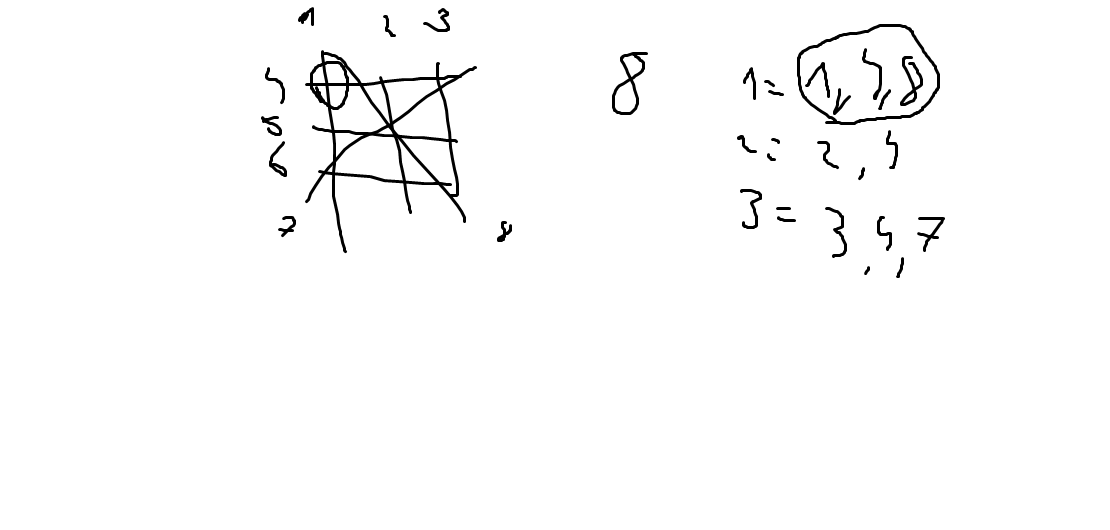 1 2 3
4
5
6
7 8
8
1= 1, 4, 8
2= 2, 4
3= 3, 4, 7